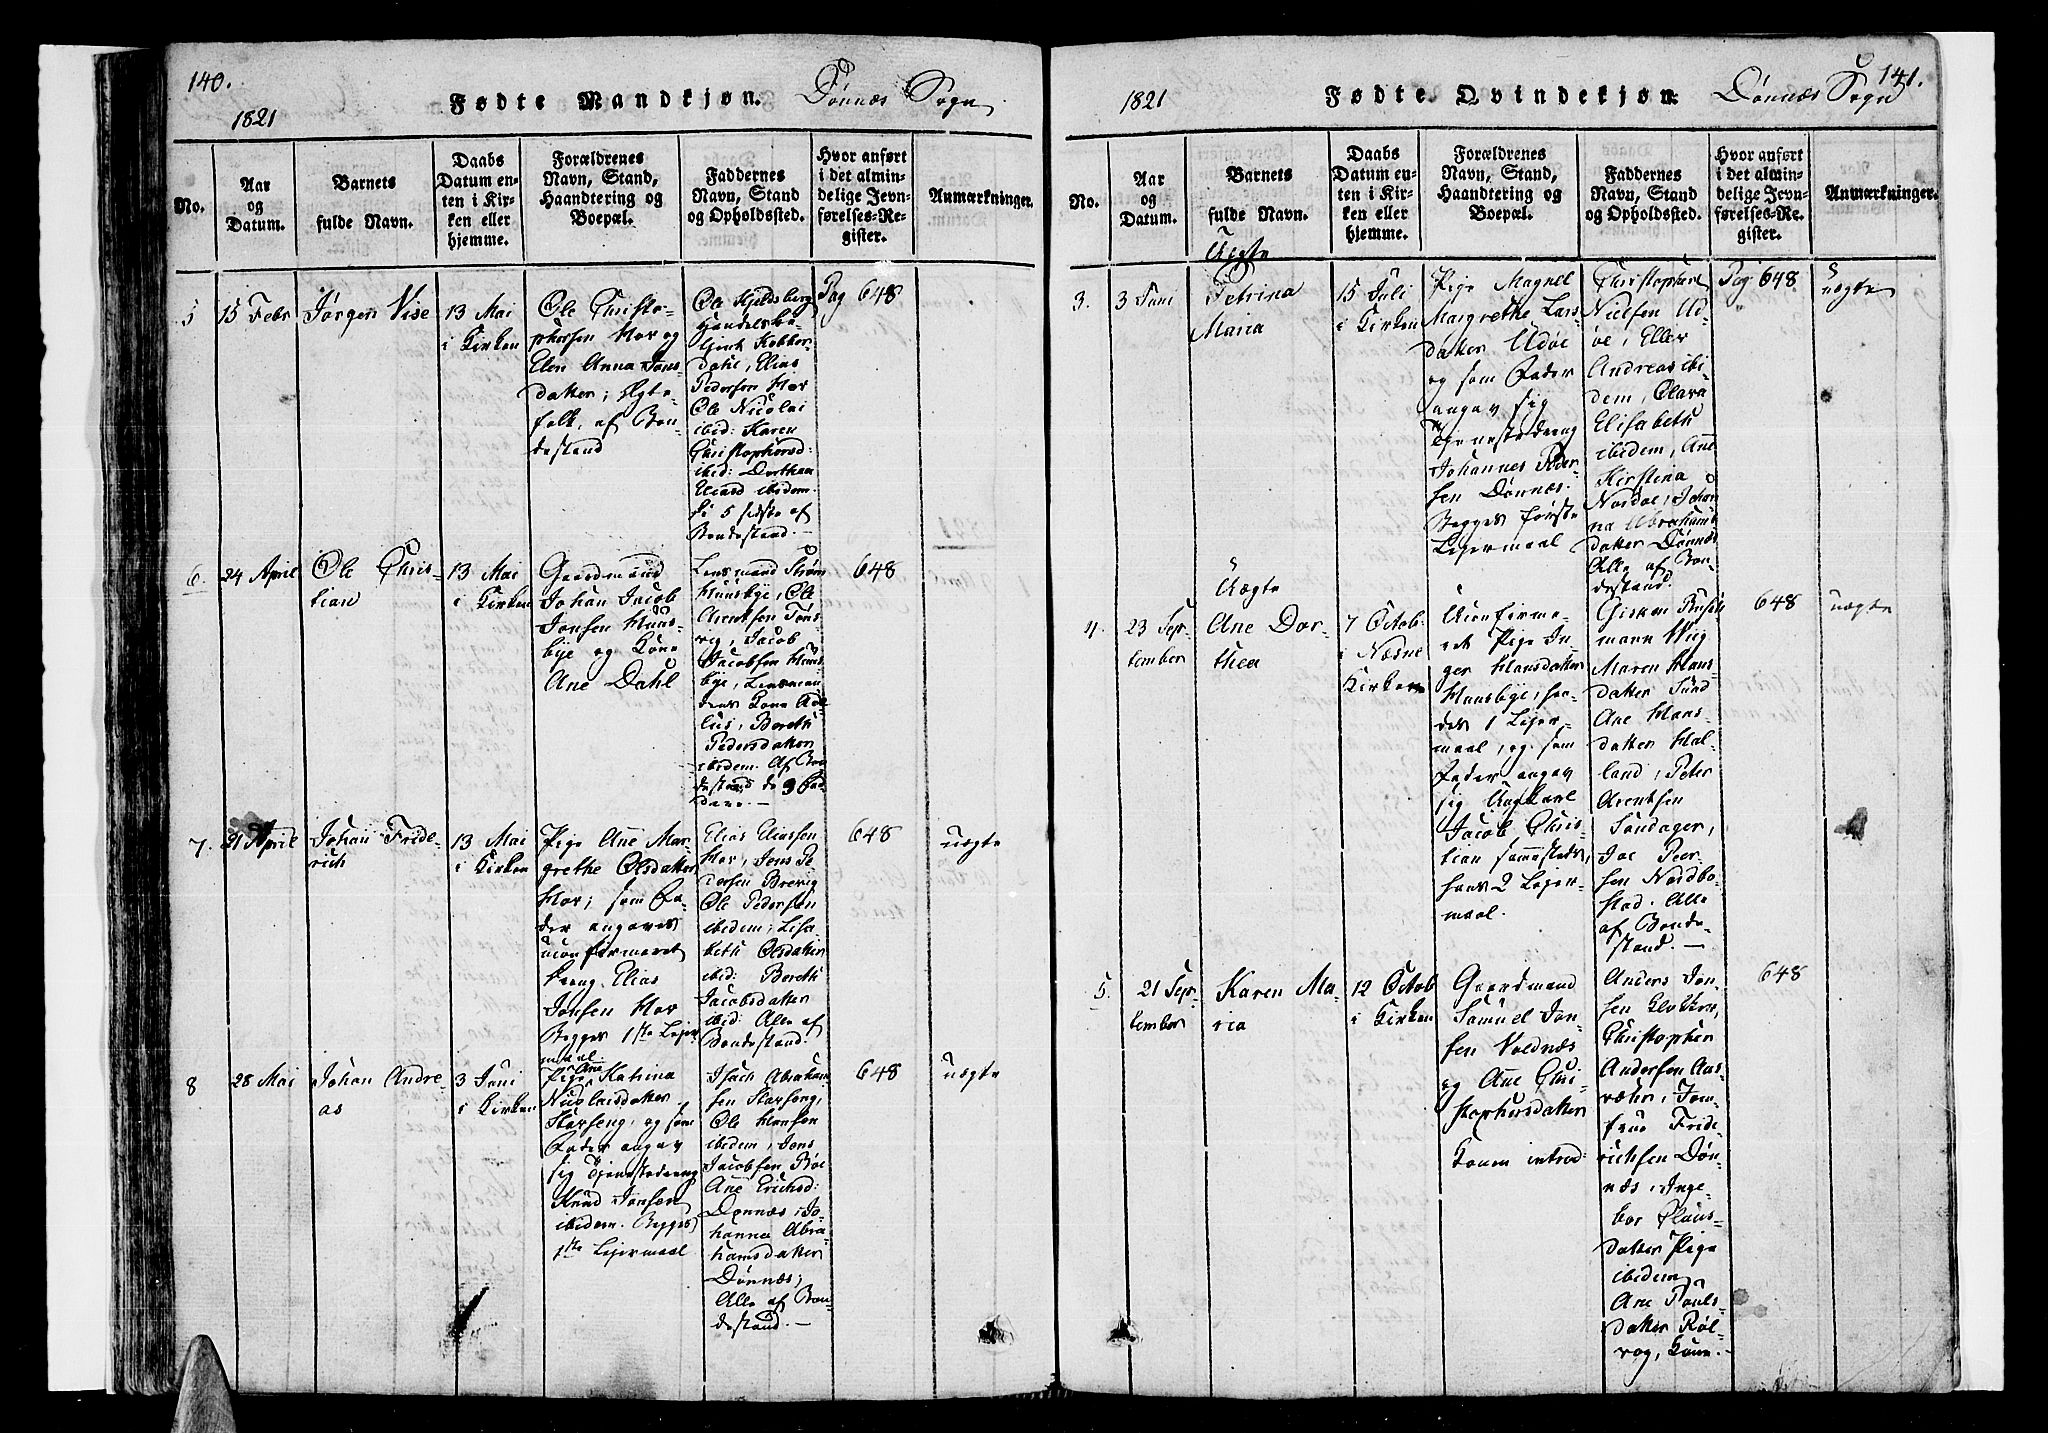 140.
1821
Fødte Mandkjøn. Dønnæs Sogn
No.
Aar
og
Datum.
Barnets
fulde Navn.
Daabs
Datum en-
ten i Kir-
ken eller
hjemme.
Forældrenes
Navn, Stand,
Haandtering og
Boepæl.
Faddernes
Navn, Stand
og Opholdssted.
Hvor anført
i det almin-
delige Jevn-
førelses-Re-
gister.
Anmærkninger.
5
15 Febr
Jørgen Vise
13 Mai
i Kirken
Ole Christo-
phersen Hov og
Elen Anna Jons-
datter, Ægte-
folk, af Bon-
destand
Ole Hjeldsberg
Handelsbe-
tjent Kobber-
dahl, Elias
Pedersen Hov
Ole Nicolai
ibid: Karen
Christophersd
ibid: Dorthea
Eliasd ibidem.
De 5 sidste af
Bondestand.
Pag 648
6.
24 April
Ole Chris-
tian
13 Mai
i Kirken
Gaardmand
Johan Jacob
Jonsen Huus-
bye og Kone
Ane Dahl
Lensmand Strøm
Huusbye, Ole
Arentsen Tøns
vig, Jacob
Jacobsen Huus-
bye, Lensman
dens Kone
Bereth
Pedersdatter
ibidem. Af Bon
destand de 3 Fad-
dere.
648
7.
21 April
Johan Fride-
rich
13 Mai
i Kirken
Pige Ane Mar-
grethe Olsdatter
Hov; som Fa-
der angaves
uconfirmeret
Dreng Elias
Jonsen Hov
Begges 1ste Lejer
maal.
Elias Eliassen
Hov, Jens Pe
dersen Brevig
Ole Pedersen
ibidem, Lisa
beth Olsdatter
ibid: Bereth
Jacobsdatter
ibid: Alle af
Bondestand.
648
uægte
8
28 Mai
Johan Andre-
as
3 Juni
i Kirken
Pige Ane Katrina
Nicolaisdatter
Skarseng, og som
Fader angav
sig Tjenestedreng
Knud Jonsen
ibidem. Begges
1ste Lejermaal
Isach Abraham
sen Skarseng,
Ole Hansen
ibidem, Jens
Jacobsen Bøe
Ane Erichsd:
Dønnæs, Jo-
hanna Abra-
hamsdatter
Dønnæs;
Alle af Bon-
destand.
648
uægte
141.
1821
Fødte Qvindekjøn. Dønnæs Sogn
No.
Aar
og
Datum.
Barnets
fulde Navn.
Daabs
Datum en-
ten i Kir-
ken eller
hjemme.
Forældrenes
Navn, Stand,
Haandtering og
Boepæl.
Faddernes
Navn, Stand
og Opholdssted.
Hvor anført
i det almin-
delige Jevn-
førelses-Re-
gister.
Anmærkninger.
3.
3 Juni
Uægte
Petrina
Maria
15 Juli
i Kirken
Pige Magnel
Margrethe Lars-
datter Udøe
og som Fader
angav sig
Tjenestedreng
Johannes Peder-
sen Dønnæs.
Begges første
Lejermaal
Christopher
Nielsen Ud-
øe, Eller
Andreas ibi-
dem, Clara
Elisabeth
ibidem, Ane
Kirstina
Nordøe, Johan
na Abrahams
datter Dønnæs
Alle af Bon-
destand.
Pag 648
uægte
4.
23 Sep-
tember
Uægte
Ane Dor-
thea
7 Octob.
i Næsne
Kirken
Uconfirme-
ret Pige In-
ger Hansdatter
Huusbye, hen-
des 1 Lejer-
maal, og som
Fader angav
sig Ungkarl
Jacob Chris-
tian sammesteds,
hans 2 Lejer-
maal.
mann Wiig
Maren Hans-
datter Sund
Ane Hans-
datter Hal-
land, Peter
Arentsen
Søndager,
Joe Peer-
sen Nordbo-
stad. Alle
af Bonde-
stand.
648
uægte
5.
21 Sep-
tember
Karen Ma-
ria
12 Octob
i Kirken
Gaardmand
Samuel Jon-
sen Noldnæs
og Ane Chri-
stophersdatter
Konen introd:
Anders Jon-
sen Glostern,
Christopher
Andersen Aas-
væhr, Jom-
frue Fride-
richsen Døn-
næs, Inge-
bor Claus-
datter Pige
ibidem
Ane Pouls-
datter Røl-
vog, Kone.
648